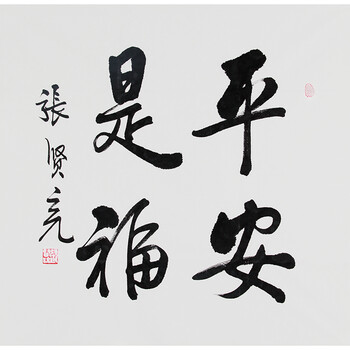 平安
是福
張贤亮